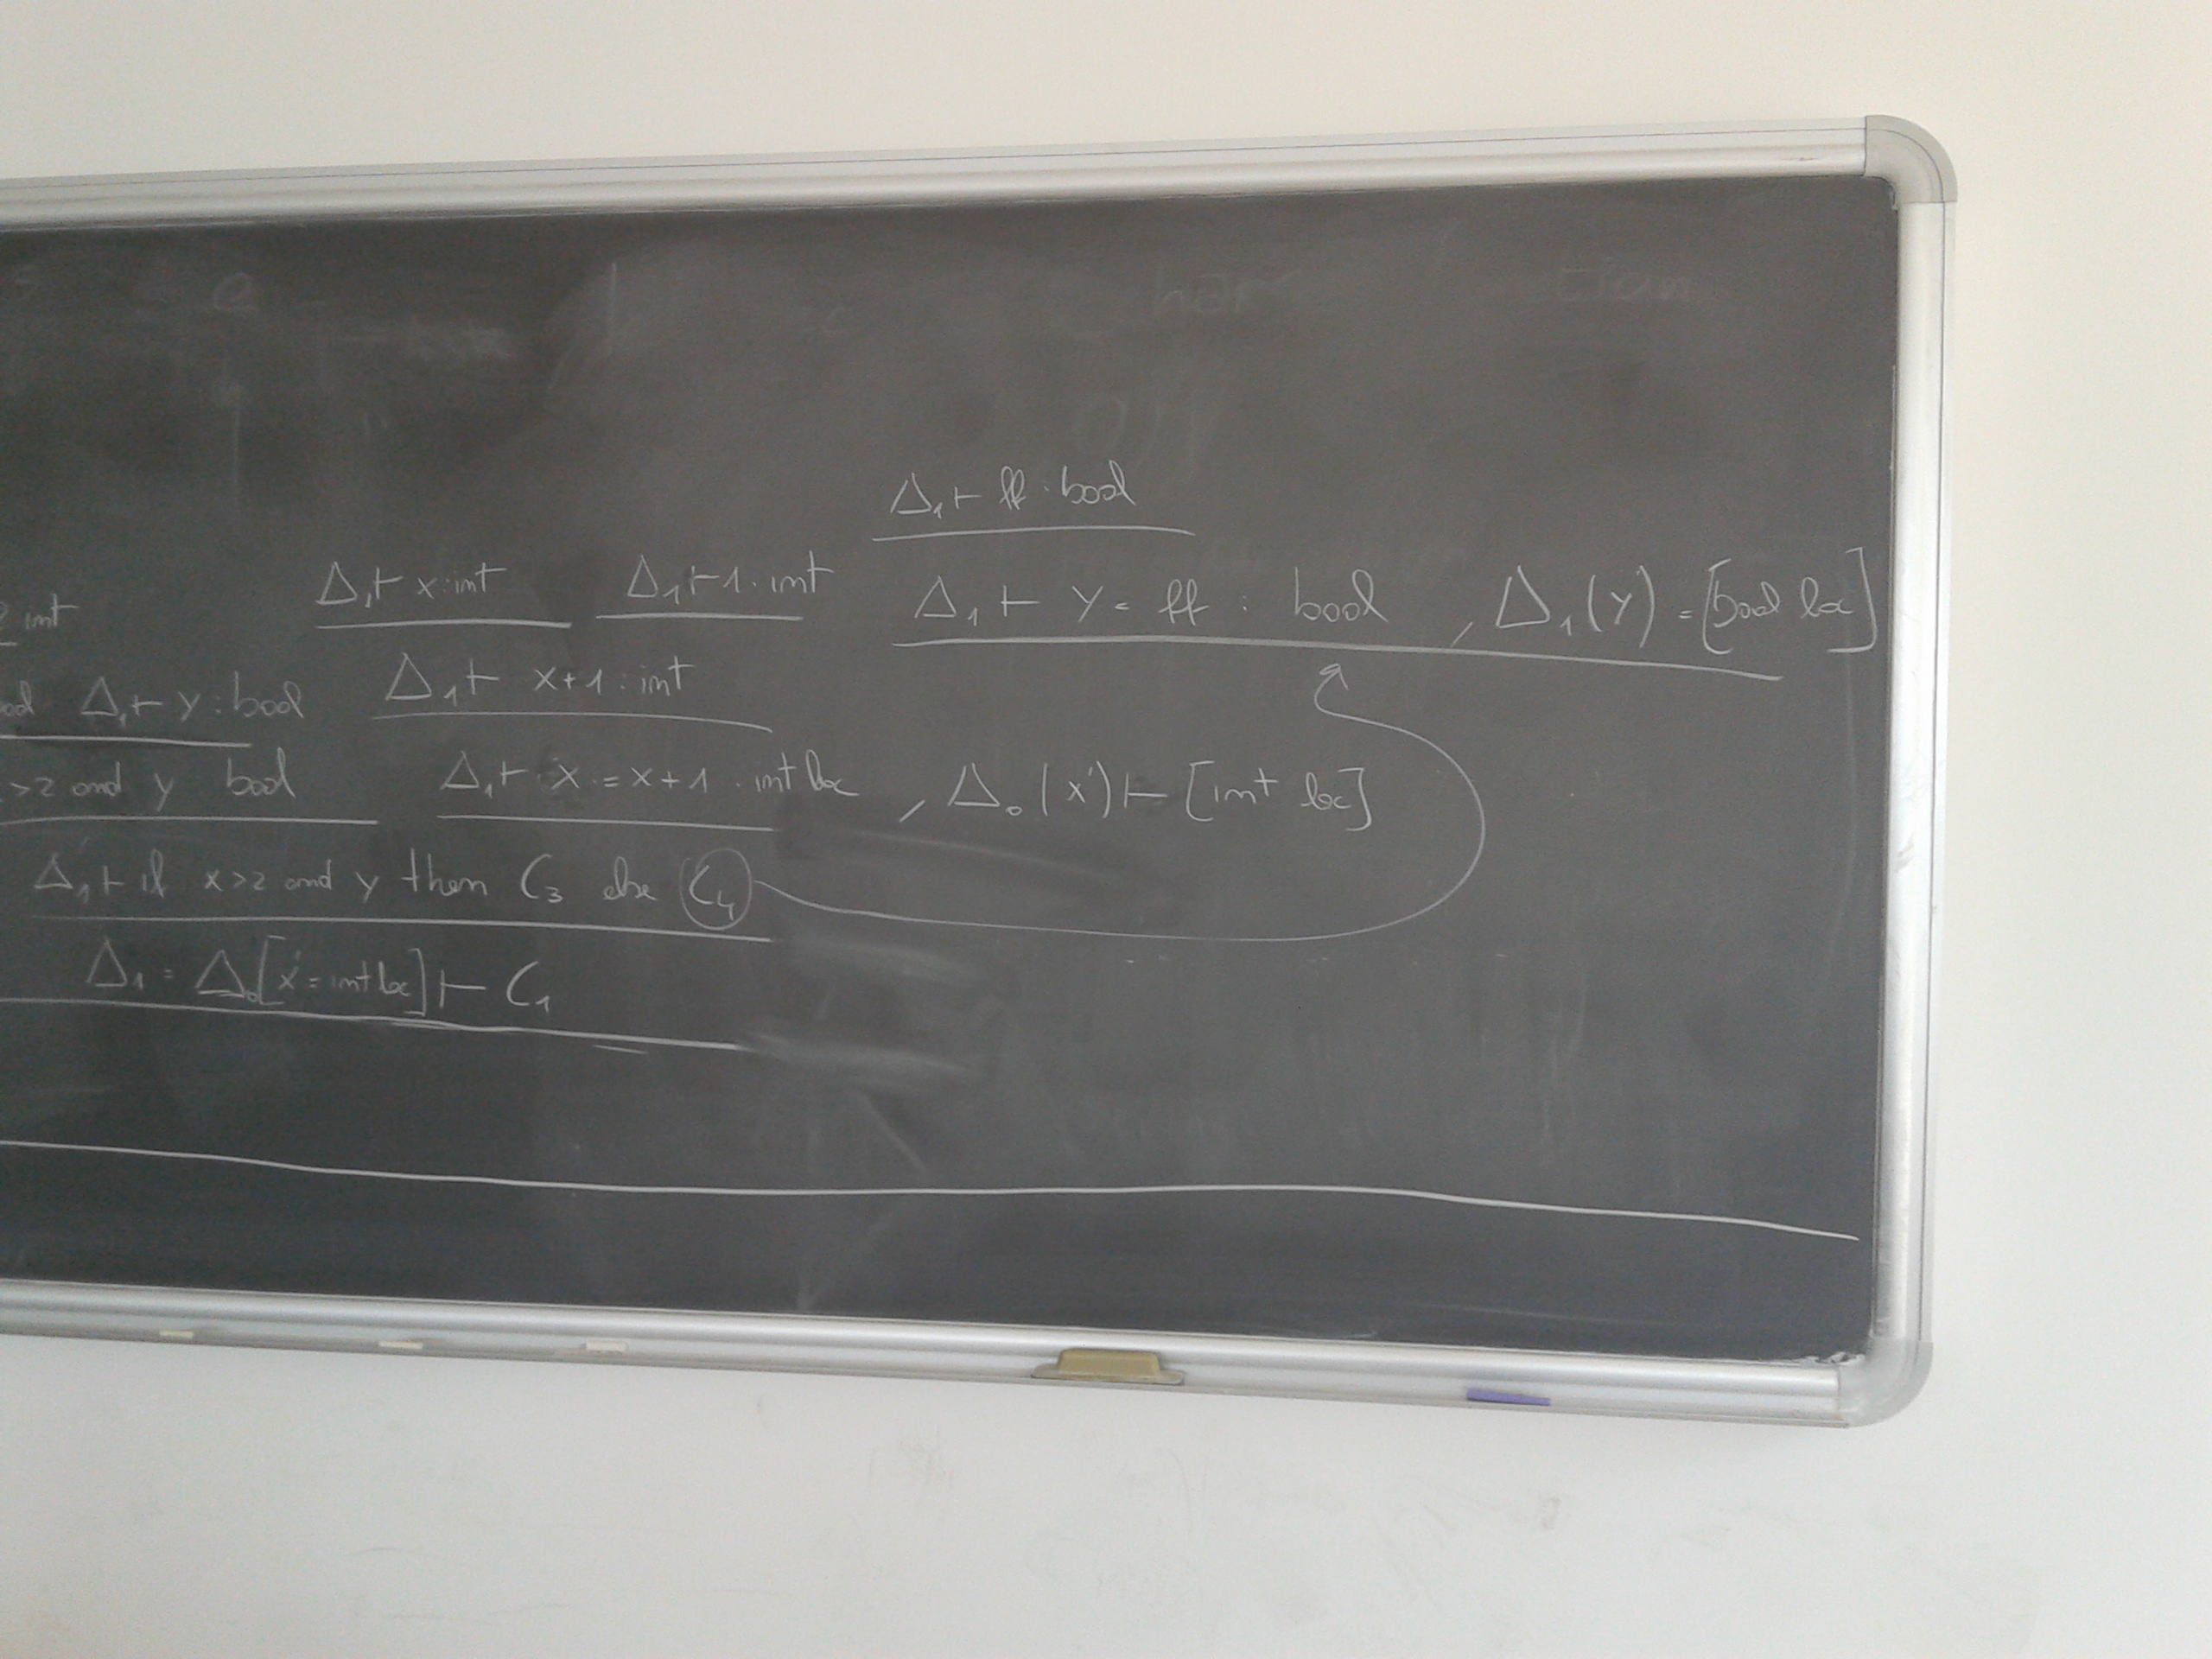 Δ₁ ⊢ ff : bool
2 int
Δ₁ ⊢ x : int
Δ₁ ⊢ 1 : int
Δ₁ ⊢ y = ff : bool , Δ₁(y) = [bool loc]
Δ₁ ⊢ y : bool
Δ₁ ⊢ x+1 : int
>2 and y bool
Δ₁ ⊢ x := x+1 : int loc , Δ₀(x) ⊢ [int loc]
Δ₁ ⊢ if x>2 and y then C₃ else C₄
Δ₁ = Δ₀[x = int loc] ⊢ C₁